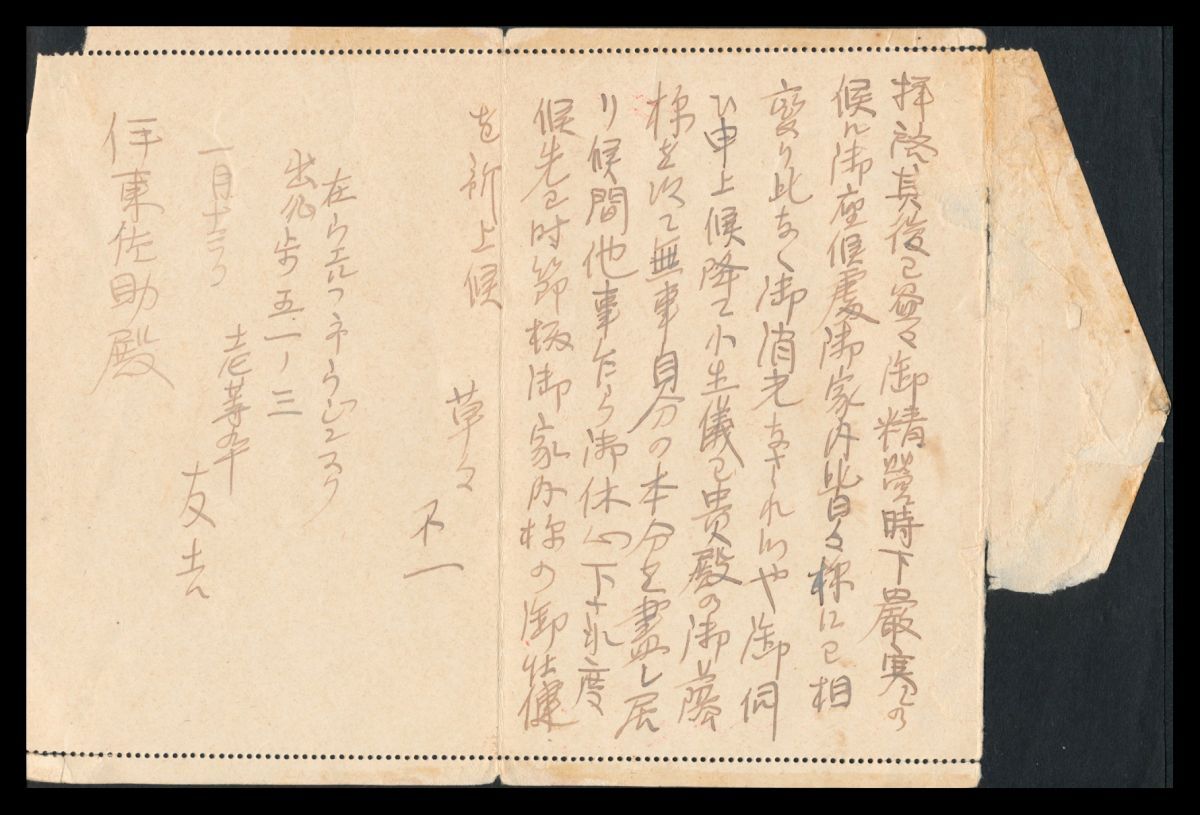 拝啓其後ハ益々御精営時下厳寒之
候ニ御座候處御家内皆々様にハ相
変り此なく御消光なされ候や御伺
ひ申上候降て小生儀ハ貴殿の御蔭
様を以て無事身分の本分を盡し居
り候間他事乍ら御休心下され度
候先ハ時節柄御家内様の御壮健
を祈上候
草々
不一
在ウエルフ子ウヂンスク
出兵歩五一ノ三
一月十三日
友吉
伊東佐助殿